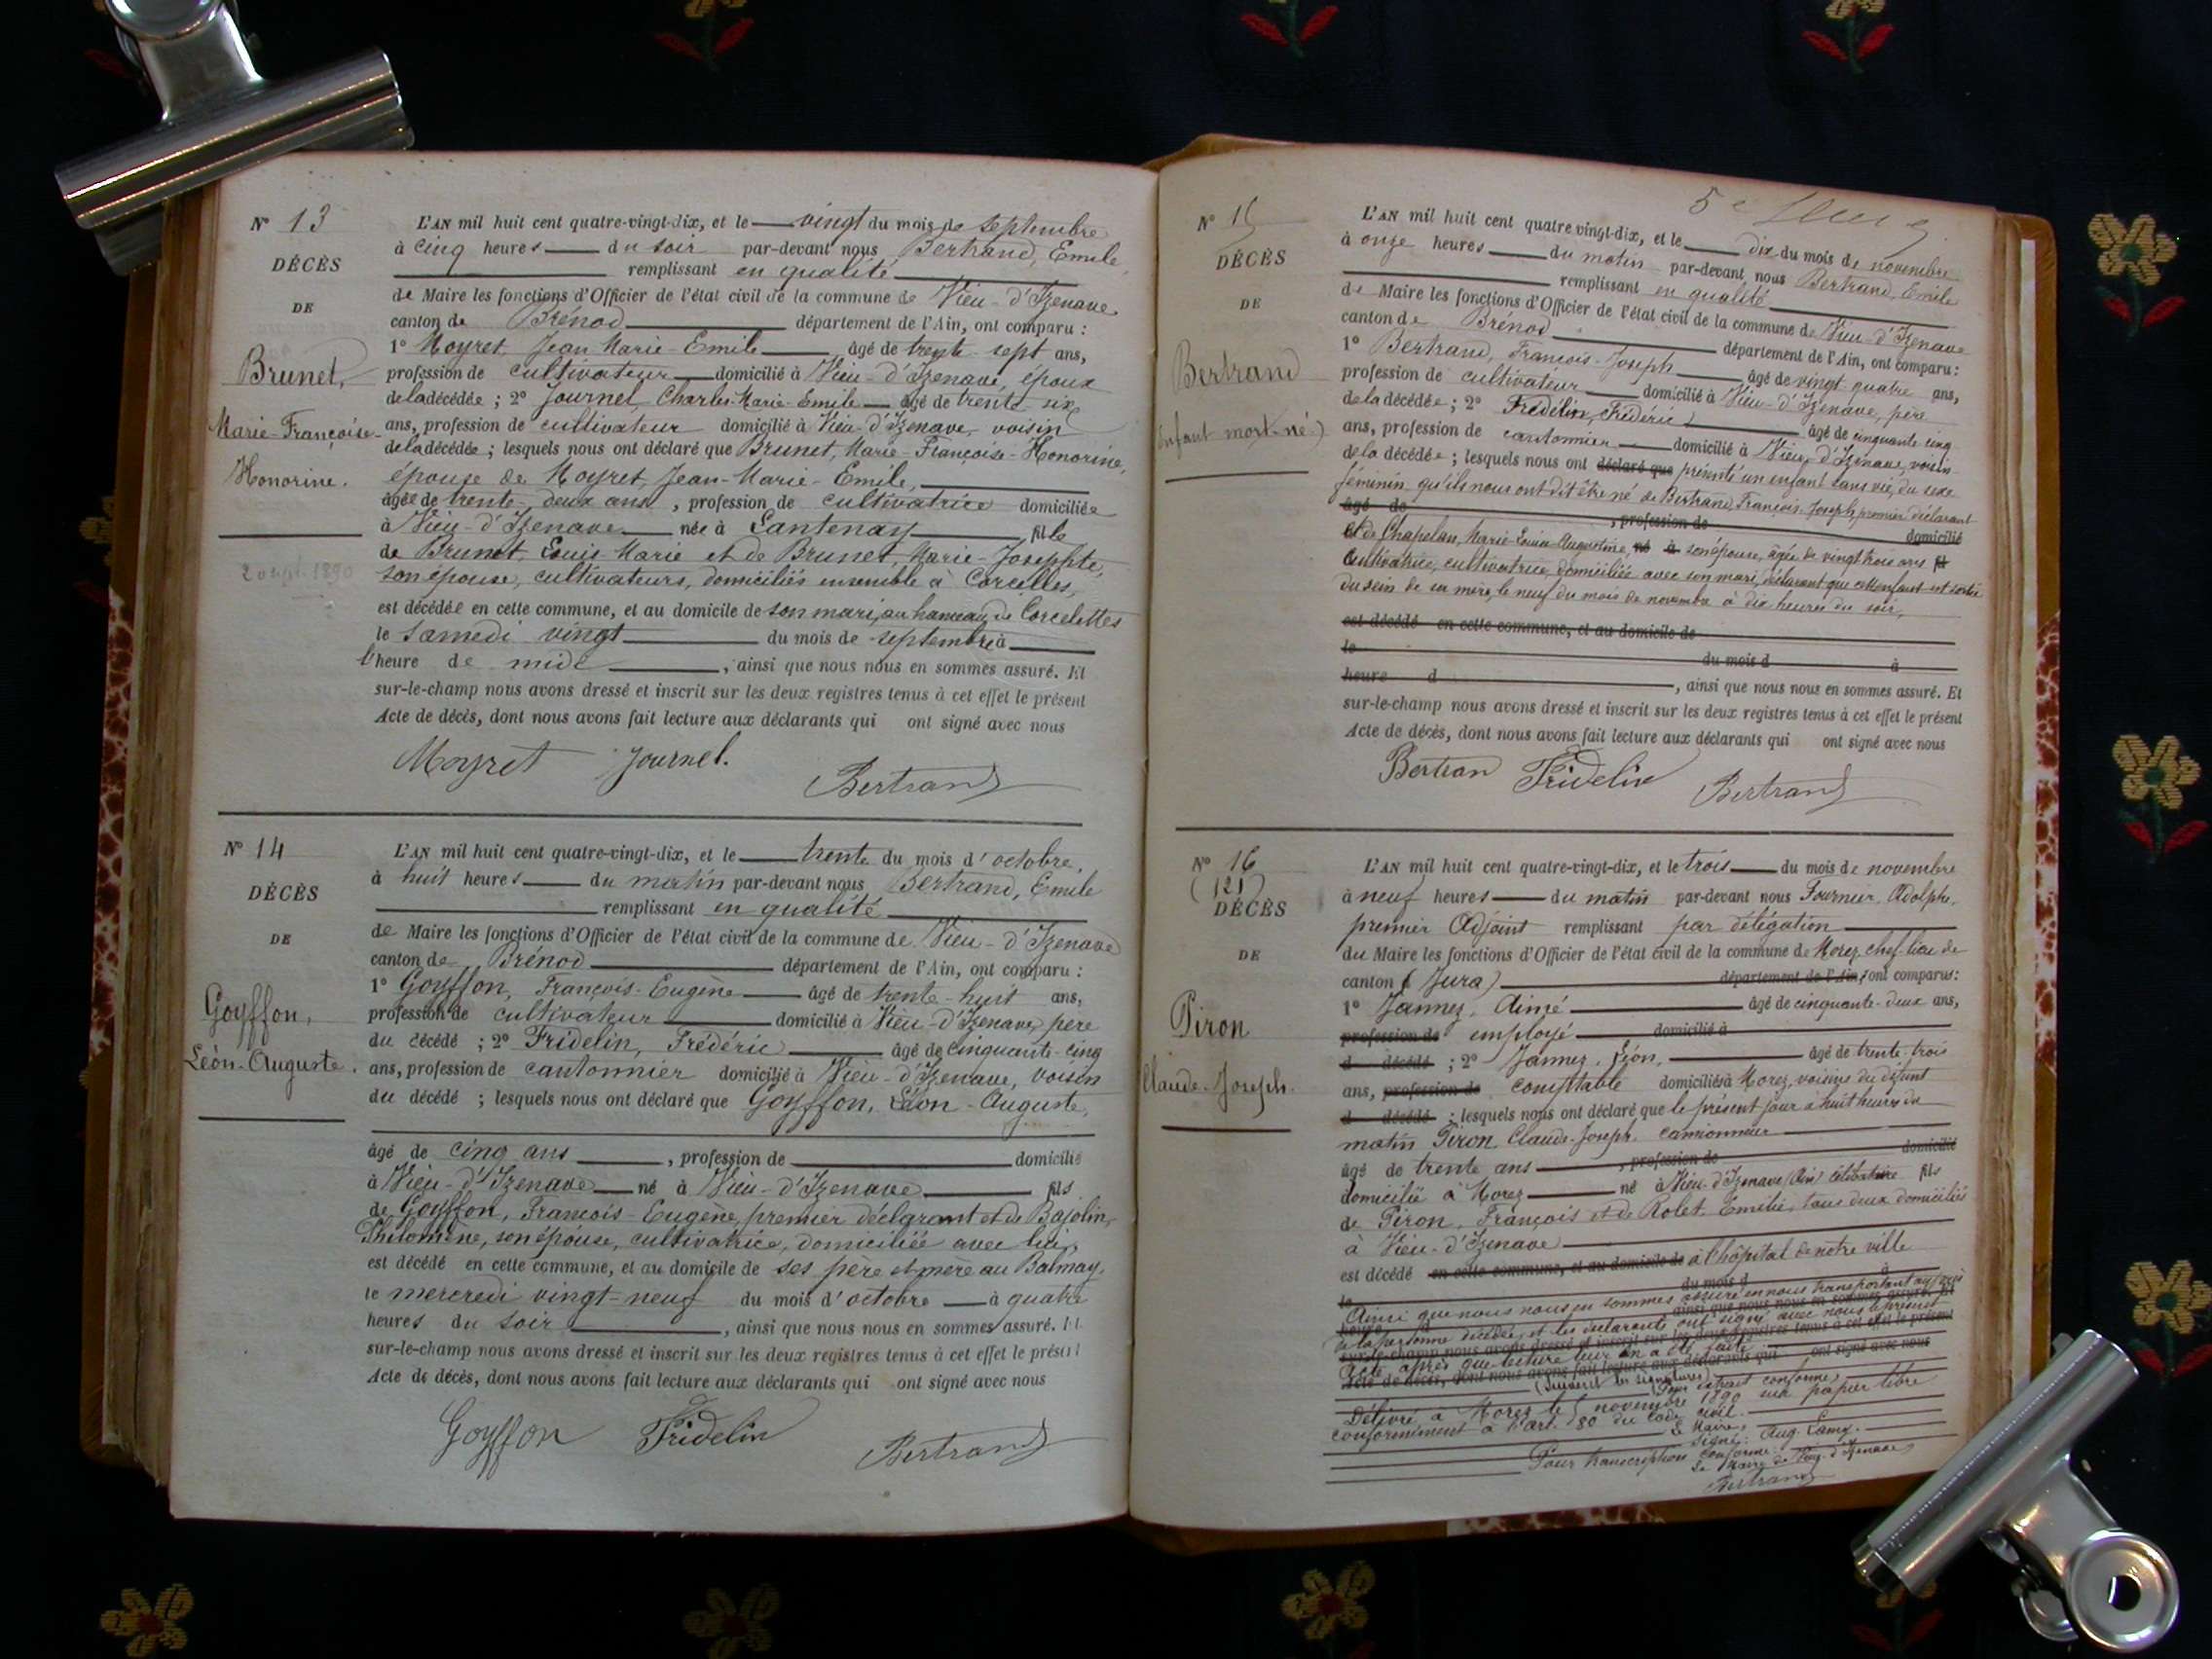 N° 13
DÉCÈS
DE
Brunet,
Marie-Françoise-
Honorine.
L'AN mil huit cent quatre-vingt-dix, et le vingt du mois de septembre
à cinq heures du soir par-devant nous Bertrand, Emile,
remplissant en qualité
de Maire les fonctions d'Officier de l'état civil de la commune de Vieu-d'Izenave,
canton de Brénod département de l'Ain, ont comparu :
1° Moyret, Jean-Marie-Emile âgé de trente-sept ans,
profession de cultivateur domicilié à Vieu-d'Izenave, époux
de la décédée ; 2° Journel, Charles-Marie-Emile âgé de trente-six
ans, profession de cultivateur domicilié à Vieu-d'Izenave, voisin
de la décédée ; lesquels nous ont déclaré que Brunet, Marie-Françoise-Honorine,
épouse de Moyret, Jean-Marie-Emile,
âgée de trente-deux ans, profession de cultivatrice domiciliée
à Vieu-d'Izenave née à Lantenay fille
de Brunet, Louis-Marie et de Brunet, Marie-Josephte,
son épouse, cultivateurs, domiciliés ensemble à Corcelles,
est décédée en cette commune, et au domicile de son mari, au hameau de Corcelettes
le samedi vingt du mois de septembre à
l'heure de midi, ainsi que nous nous en sommes assuré. Et
sur-le-champ nous avons dressé et inscrit sur les deux registres tenus à cet effet le présent
Acte de décès, dont nous avons fait lecture aux déclarants qui ont signé avec nous
Moyret Journel.
Bertrand
N° 14
DÉCÈS
DE
Goyffon,
Léon-Auguste.
L'AN mil huit cent quatre-vingt-dix, et le trente du mois d'octobre,
à huit heures du matin par-devant nous Bertrand, Emile
remplissant en qualité
de Maire les fonctions d'Officier de l'état civil de la commune de Vieu-d'Izenave
canton de Brénod département de l'Ain, ont comparu :
1° Goyffon, François-Eugène âgé de trente-huit ans,
profession de cultivateur domicilié à Vieu-d'Izenave, père
du décédé ; 2° Fridelin, Frédéric âgé de cinquante-cinq
ans, profession de cantonnier domicilié à Vieu-d'Izenave, voisin
du décédé ; lesquels nous ont déclaré que Goyffon, Léon-Auguste,
âgé de cinq ans, profession de domicilié
à Vieu-d'Izenave né à Vieu-d'Izenave fils
de Goyffon, François-Eugène, premier déclarant et de Bajolin,
Philomène, son épouse, cultivatrice, domiciliée avec lui,
est décédé en cette commune, et au domicile de ses père et mère au Balmay,
le mercredi vingt-neuf du mois d'octobre à quatre
heures du soir, ainsi que nous nous en sommes assuré. Et
sur-le-champ nous avons dressé et inscrit sur les deux registres tenus à cet effet le présent
Acte de décès, dont nous avons fait lecture aux déclarants qui ont signé avec nous
Goyffon Fridelin
Bertrand
N° 15
DÉCÈS
DE
Bertrand
(enfant mort-né)
L'AN mil huit cent quatre vingt-dix, et le dix du mois de novembre
à onze heures du matin par-devant nous Bertrand, Emile
remplissant en qualité
de Maire les fonctions d'Officier de l'état civil de la commune de Vieu-d'Izenave
canton de Brénod département de l'Ain, ont comparu :
1° Bertrand, François-Joseph âgé de vingt-quatre ans,
profession de cultivateur domicilié à Vieu-d'Izenave, père
de la décédée ; 2° Fridelin, Frédéric âgé de cinquante-cinq
ans, profession de cantonnier domicilié à Vieu-d'Izenave, voisin
de la décédée ; lesquels nous ont déclaré que présenté un enfant sans vie, du sexe
féminin qu'ils nous ont dit être né de Bertrand, François-Joseph, premier déclarant
âgé de , profession de domicilié
et de Chapelan, Marie-Louise-Augustine, né à son épouse, âgée de vingt trois ans fil
cultivatrice, cultivatrice, domiciliée avec son mari, déclarant que cet enfant est sorti
du sein de sa mère, le neuf du mois de novembre à dix heures du soir,
est décédé en cette commune, et au domicile de
le du mois d à
heure d , ainsi que nous nous en sommes assuré. Et
sur-le-champ nous avons dressé et inscrit sur les deux registres tenus à cet effet le présent
Acte de décès, dont nous avons fait lecture aux déclarants qui ont signé avec nous
Bertran Fridelin
Bertrand
N° 16
(121)
DÉCÈS
DE
Piron
Claude-Joseph.
L'AN mil huit cent quatre-vingt-dix, et le trois du mois de novembre
à neuf heures du matin par-devant nous Fournier, Adolphe,
premier Adjoint remplissant par délégation
du Maire les fonctions d'Officier de l'état civil de la commune de Morez, chef-lieu de
canton (Jura) département de l'Ain, ont comparus :
1° Jannez, Aimé âgé de cinquante-deux ans,
profession de employé domicilié à
d décédé ; 2° Jannez, Léon, âgé de trente-trois
ans, profession de comptable domiciliés à Morez, voisins du défunt
d décédé ; lesquels nous ont déclaré que le présent jour à huit heures du
matin Piron, Claude-Joseph, camionneur
âgé de trente ans, profession de domicilié
domicilié à Morez né à Vieu-d'Izenave (Ain) célibataire fils
de Piron, François et de Rolet, Emilie, tous deux domiciliés
à Vieu-d'Izenave
est décédé en cette commune, et au domicile de à l'hôpital de notre ville
le du mois d à
Ainsi que nous nous en sommes assuré en nous transportant auprès
de la personne décédée, et les déclarants ont signé avec nous le présent
sur-le-champ nous avons dressé et inscrit sur les deux registres tenus à cet effet le présent
acte après que lecture leur en a été faite
Acte de décès, dont nous avons fait lecture aux déclarants qui ont signé avec nous
(Suivent les signatures)
Pour extrait conforme,
Délivré à Morez le 5 novembre 1890 sur papier libre
conformément à l'art. 80 du Code civil.
Le Maire,
Signé: Aug. Lamy.
Pour transcription conforme:
Le Maire de Vieu-d'Izenave
Bertrand